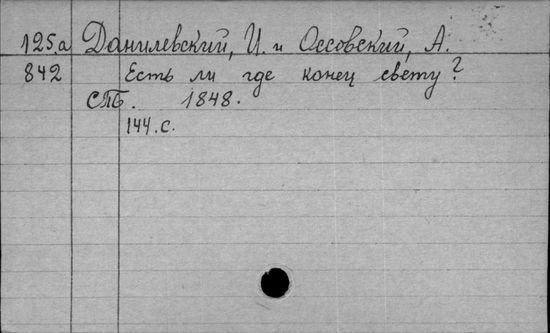 125.a Данилевский, И. и Оссовский, А.
842 Есть ли где конец свету?
СПб. 1848.
144.с.